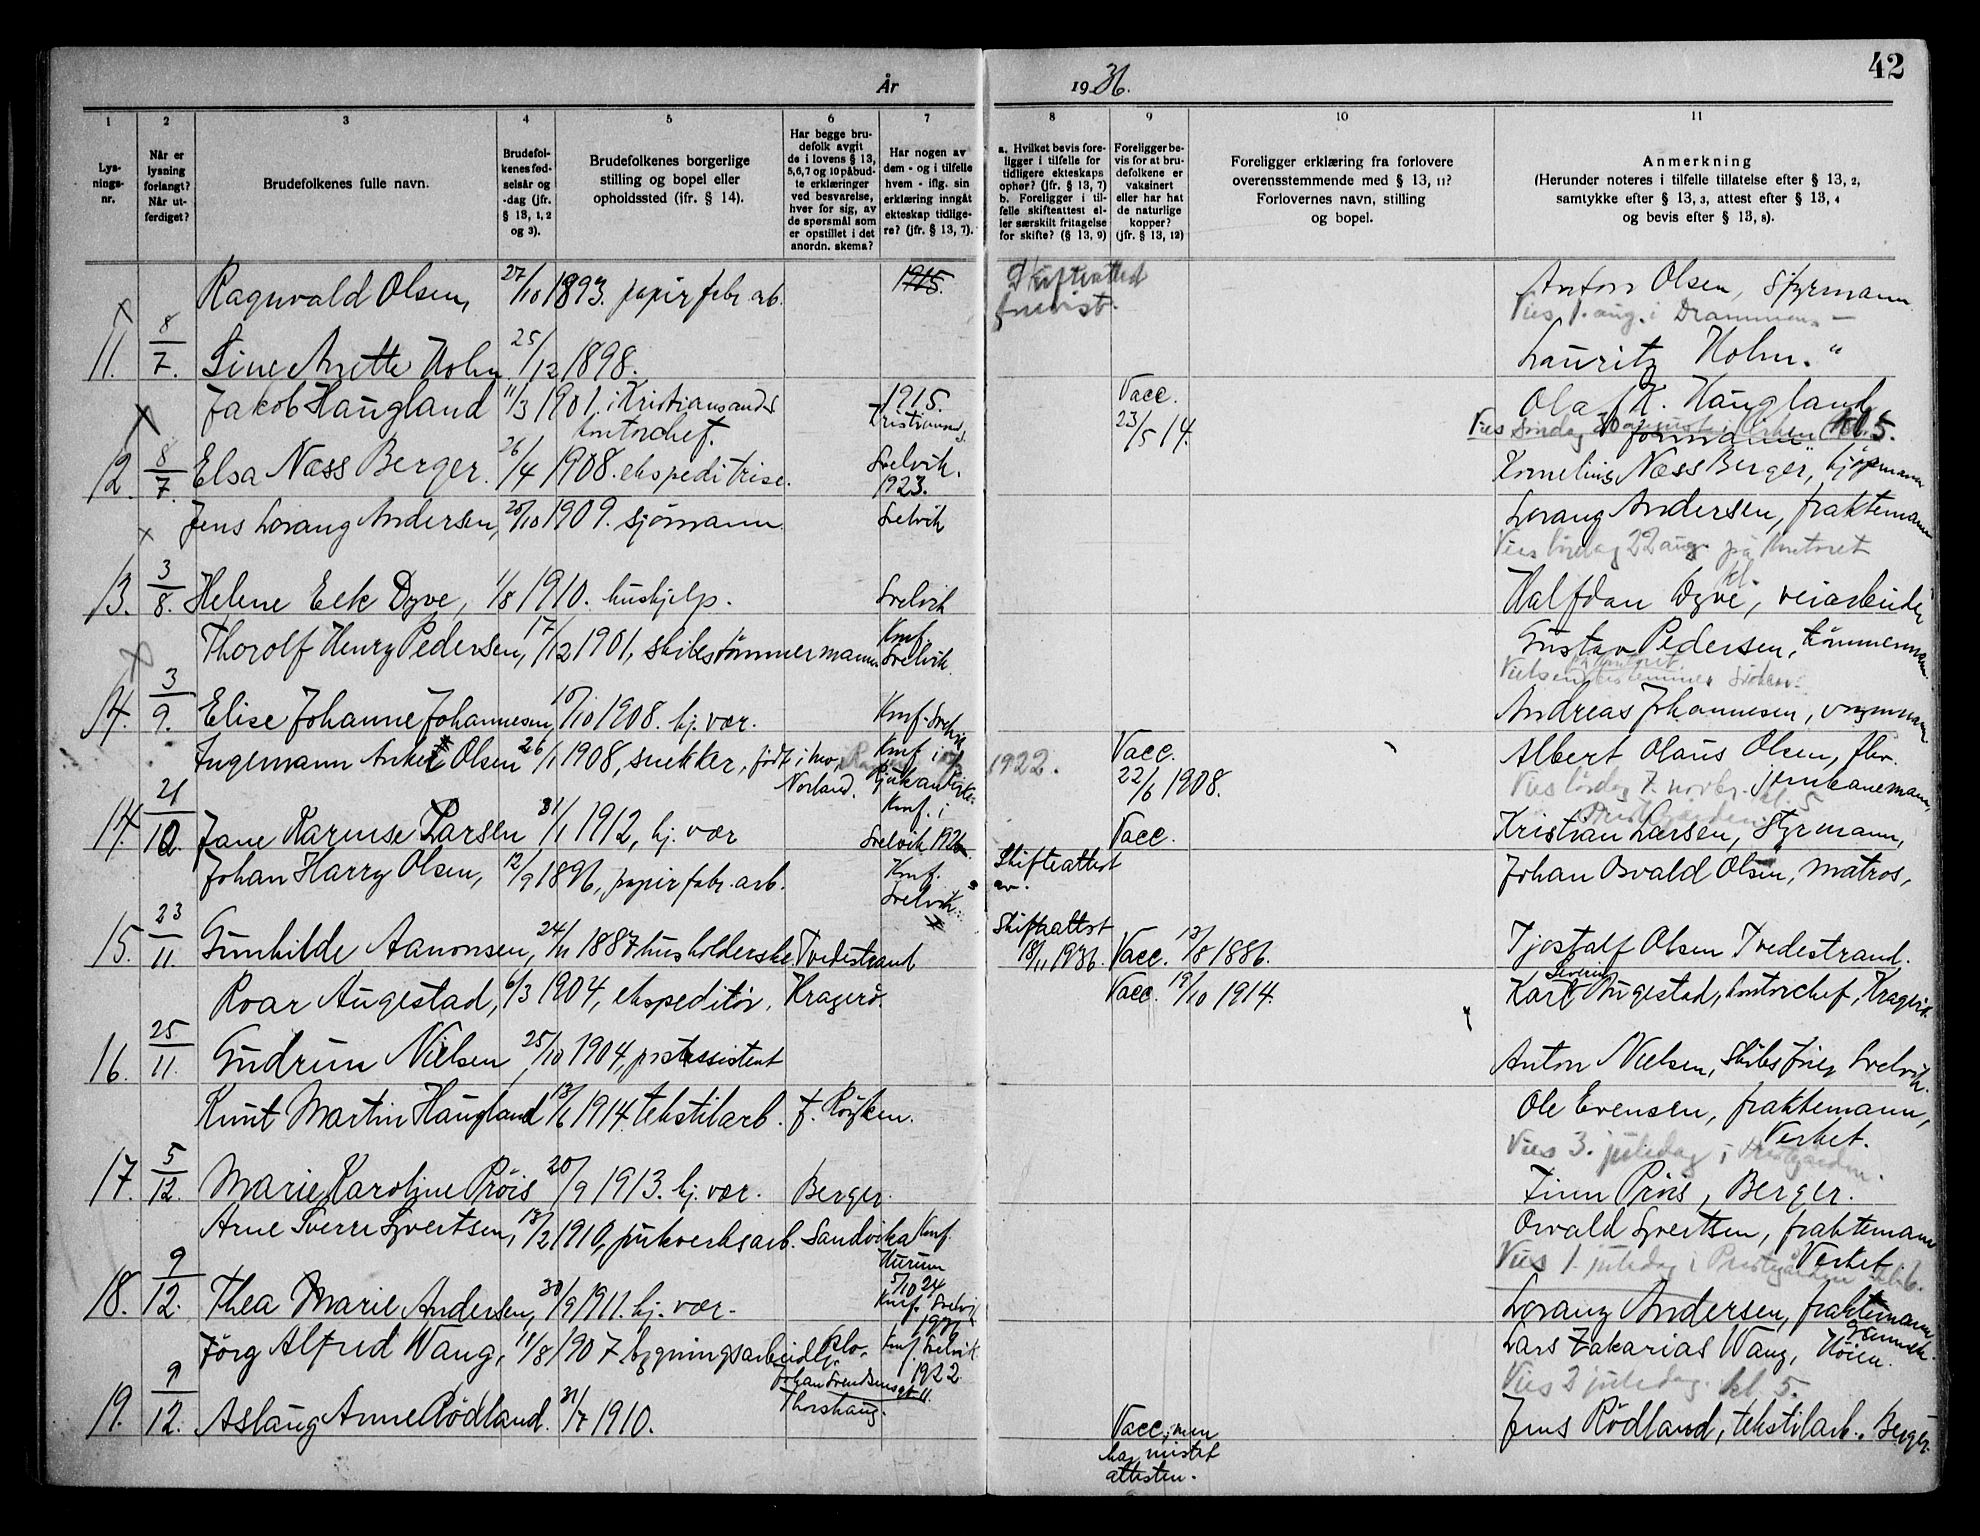 År 1936.
42
1 2 3 4 5 6 7 8 9 10 11
Lysningsnr.
Når er lysning forlangt? Når utferdiget?
Brudefolkenes fulle navn.
Brudefolkenes fødselsår og -dag (jfr. § 13, 1, 2 og 3).
Brudefolkenes borgerlige stilling og bopel eller opholdssted (jfr. § 14).
Har begge brudefolk avgit de i lovens § 13, 5, 6, 7 og 10 påbudte erklæringer ved besvarelse, hver for sig, av de spørsmål som er opstillet i det anordn. skema?
Har nogen av dem - og i tilfelle hvem - iflg. sin erklæring inngåt ekteskap tidligere? (jfr. § 13, 7).
a. Hvilket bevis foreligger i tilfelle for tidligere ekteskaps ophør? (jfr. § 13, 7) b. Foreligger i tilfelle skifteattest eller særskilt fritagelse for skifte? (§ 13, 9)
Foreligger bevis for at brudefolkene er vaksinert eller har hat de naturlige kopper? (jfr. § 13, 12)
Foreligger erklæring fra forlovere overensstemmende med § 13, 11? Forlovernes navn, stilling og bopel.
Anmerkning (Herunder noteres i tilfelle tillatelse efter § 13, 2, samtykke efter § 13, 3, attest efter § 13, 4 og bevis efter § 13, 8).
Ragnvald Olsen, 27/10 1893. papirfabr. arb. 1915. Skifteattest Anton Olsen, Styrmann
Vies 1. aug. i Drammen
11. 8/7. Line Anette Holm 25/12 1898. Lauritz Holm. "
Jakob Haugland 11/3 1901. i Kristiansand 1915. Vacc. Olaf K. Haugland
kontorchef. Kristiansand 23/5 14. Vies Söndag kl 5.
12. 8/7. Elsa Næss Berger. 26/4 1908. ekspeditrise. Svelvik. 1923. Kornelius Næss Berger, kjöpmann
Jens Lorang Andersen, 20/10 1909. sjömann Svelvik Lorang Andersen, fraktemann
Vies lördag 22 aug. på kontoret
13. 3/8. Helene Eek Dyve, 1/8 1910. hushjelp. Svelvik Halfdan Dyve, veiarbeider
Thorolf Henry Pedersen, 17/12 1901, skibstömmermann Konf. Svelvik. Gustav Pedersen, tömmermann
på kontoret.
14. 3/9. Elise Johanne Johannesen, 10/10 1908. hj. vær. Konf. Svelvik Andreas Johannesen, vognmann
Ingemann Anker Olsen 26/1 1908, snekker, födt i Mo, Konf. i 1922. Vacc. Albert Olaus Olsen, fhv.
Norland. Rjukan kirke. 22/6 1908. jernbanemann,
Vies lördag 7. novbr. kl. 5
14. 21/10. Jane Karense Larsen 31/1 1912, hj. vær Konf. i Svelvik 1926. Vacc. Kristian Larsen, Styrmann,
Johan Harry Olsen, 12/9 1896, papirfabr. arb. Konf. Svelvik. Skifteattest av. Johan Osvald Olsen, matros,
15. 23/11. Gunhilde Aanonsen, 24/11 1887 husholderske Tvedestrand Skifteattest 18/11 1936. Vacc. 13/8 1886. Tjostalf Olsen Tvedestrand.
Roar Augestad, 6/3 1904, ekspeditör, Kragerö. Vacc. 19/10 1914. Karl Severin Augestad, kontorchef, Kragerö.
16. 25/11. Gudrun Nielsen, 25/10 1904, postassistent Anton Nielsen, Skibsförer Svelvik.
Knut Martin Haugland 13/6 1914. tekstilarb. f. Röyken. Ole Evensen, fraktemann, Verket.
Vies 3. juledag i Prestegården.
17. 5/12. Marie Karoline Pröis 20/9 1913. hj. vær. Berger. Finn Pröis, Berger.
Arne Sverre Syvertsen, 18/2 1910, pukverksarb. Sandvika Konf. Hurum 5/10 24 Osvald Syvertsen, fraktemann Verket
Vies 1. juledag i Prestegården kl. 6.
18. 9/12. Thea Marie Andersen, 30/9 1911. hj. vær. Konf. Svelvik Lorang Andersen, fraktemann
Jörg Alfred Wang, 11/8 1907 bygningsarbeider Oslo, Konf. Svelvik. 1922 Lars Zakarias Wang, Höien.
Johan Svendsensgt 11. Vies 2 juledag. kl. 5.
19. 9/12. Aslaug Anne Rödland. 31/7 1910. Thorshaug. Vacc. men har mistet attesten. Jens Rödland, tekstilarb. Berger.